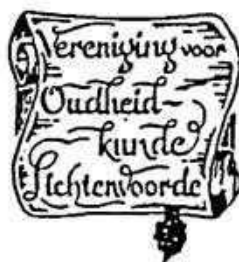 Vereniging voor
Oudheid-
kunde
Lichtenvoorde